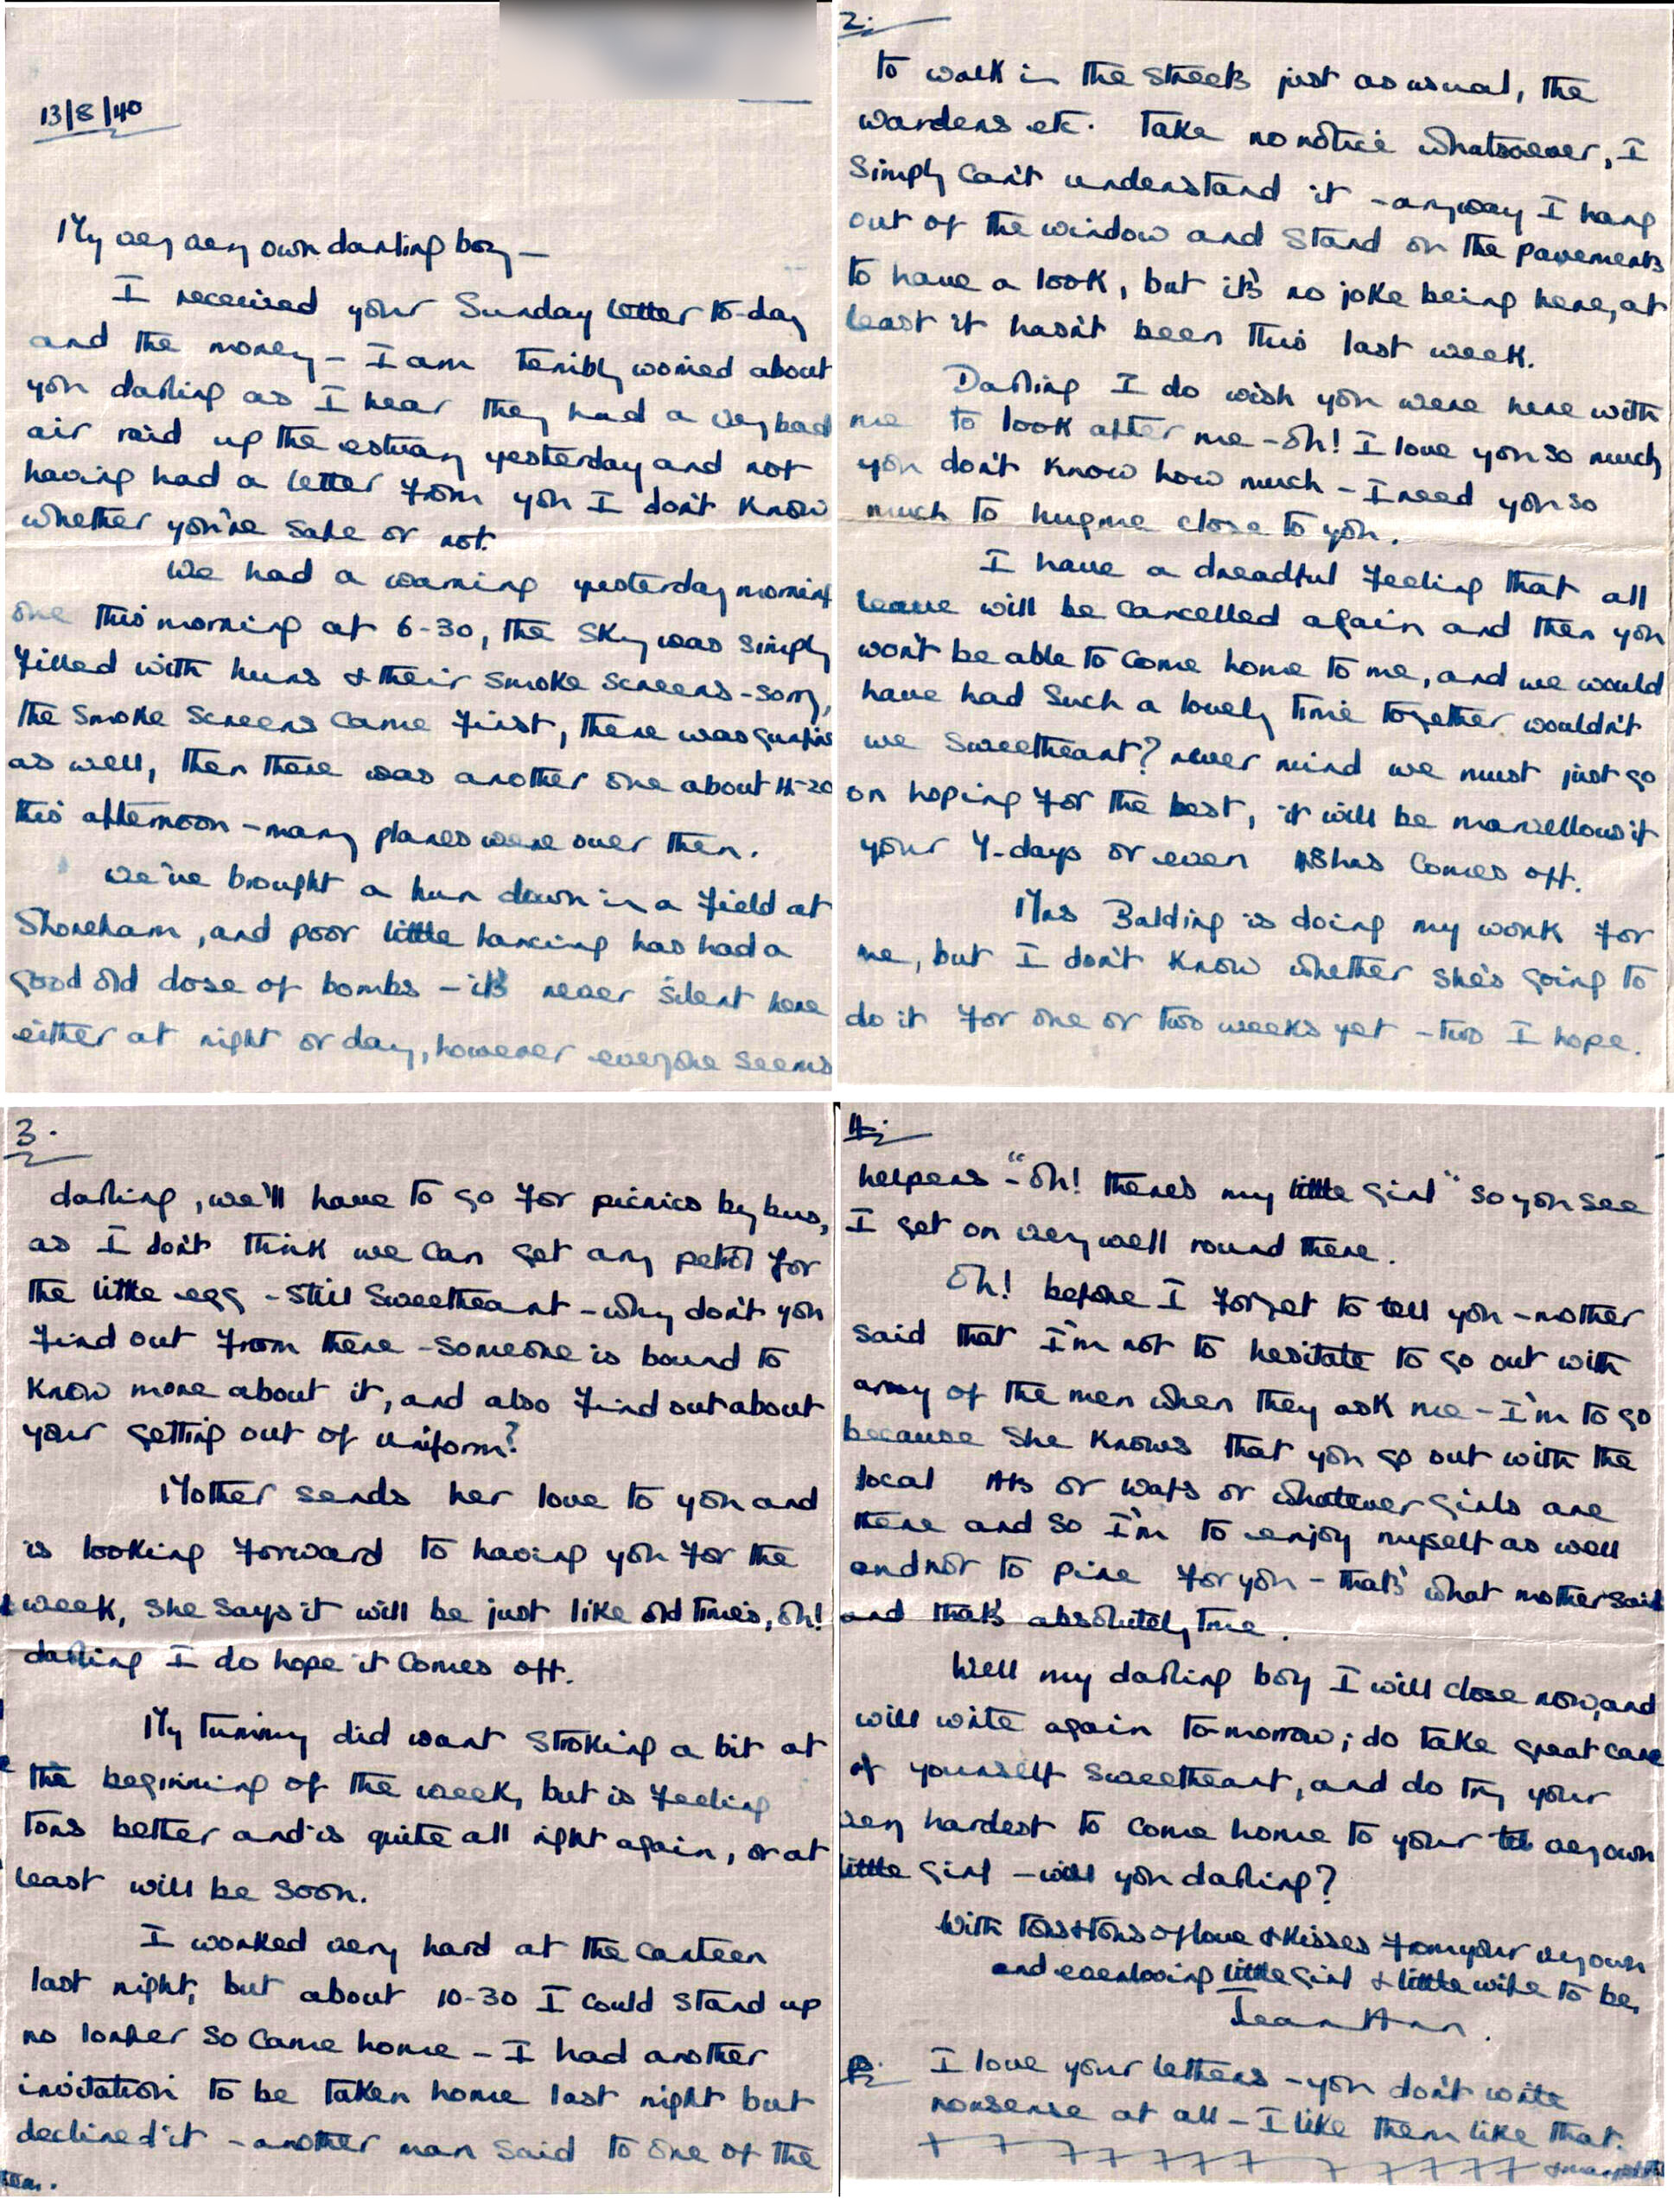 13/8/40
My very very own darling boy —
I received your Sunday letter to-day
and the money – I am terribly worried about
you darling as I hear they had a very bad
air raid up the estuary yesterday and not
having had a letter from you I don't know
whether you're safe or not.
We had a warning yesterday morning
one this morning at 6-30, the sky was simply
filled with huns & their smoke screens – sorry,
the smoke screens came first, there was gunfire
as well, then there was another one about 4-20
this afternoon – many planes were over then.
We've brought a hun down in a field at
Shoreham, and poor little Lancing has had a
good old dose of bombs – it's never silent here
either at night or day, however everyone seems
2.
to walk in the streets just as usual, the
wardens etc. take no notice whatsoever, I
simply can't understand it – anyway I hang
out of the window and stand on the pavements
to have a look, but it's no joke being here, at
least it hasn't been this last week.
Darling I do wish you were here with
me to look after me – oh! I love you so much,
you don't know how much – I need you so
much to hug me close to you.
I have a dreadful feeling that all
leave will be cancelled again and then you
won't be able to come home to me, and we would
have had such a lovely time together wouldn't
we sweetheart? never mind we must just go
on hoping for the best, it will be marvellous if
your 7-days or even 48hrs comes off.
Mrs Balding is doing my work for
me, but I don't know whether she's going to
do it for one or two weeks yet – two I hope.
3.
darling, we'll have to go for picnics by bus,
as I don't think we can get any petrol for
the little egg – still sweetheart – why don't you
find out from there – someone is bound to
know more about it, and also find out about
your getting out of uniform?
Mother sends her love to you and
is looking forward to having you for the
week, she says it will be just like old times, oh!
darling I do hope it comes off.
My tummy did want stroking a bit at
the beginning of the week, but is feeling
tons better and is quite all right again, or at
least will be soon.
I worked very hard at the canteen
last night, but about 10-30 I could stand up
no longer so came home – I had another
invitation to be taken home last night but
declined it – another man said to one of the
4.
helpers – "oh! there's my little girl" so you see
I get on very well round there.
Oh! before I forget to tell you – mother
said that I'm not to hesitate to go out with
any of the men when they ask me – I'm to go
because she knows that you go out with the
local ats or waafs or whatever girls are
there and so I'm to enjoy myself as well
and not to pine for you – that's what mother said
and that's absolutely true.
Well my darling boy I will close now, and
will write again to-morrow; do take great care
of yourself sweetheart, and do try your
very hardest to come home to your very own
little girl – will you darling?
With tons & tons of love & kisses from your very own
and everloving little girl & little wife to be,
Jean Ann.
Ps. I love your letters – you don't write
nonsense at all – I like them like that.